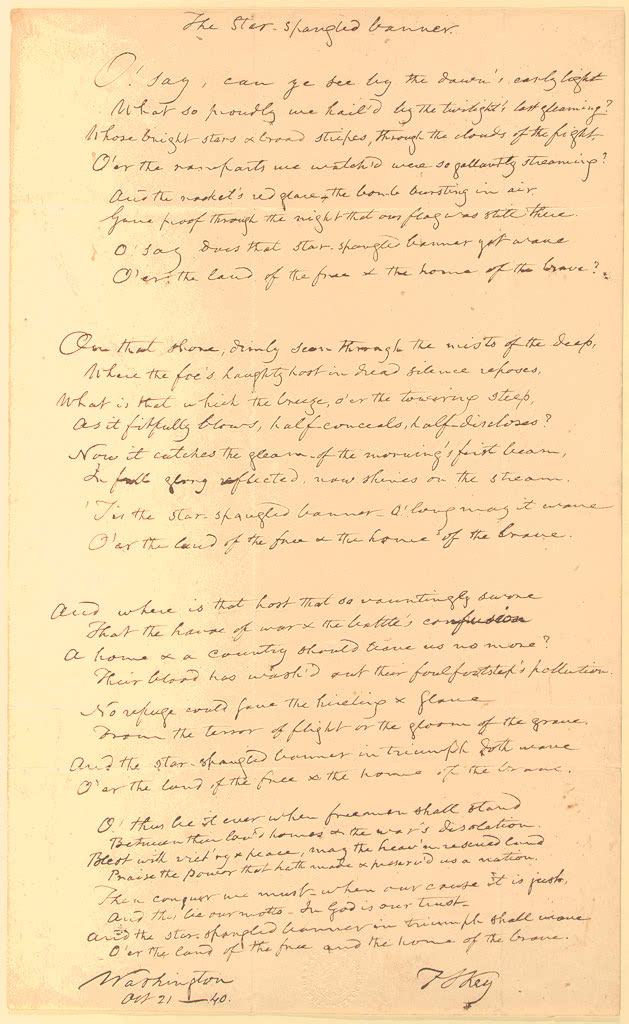 The Star-spangled banner.
O! say, can ye see by the dawn's early light
What so proudly we hail'd by the twilight's last gleaming?
Whose bright stars & broad stripes, through the clouds of the fight,
O'er the ramparts we watch'd were so gallantly streaming?
And the rocket's red glare, the bomb bursting in air,
Gave proof through the night that our flag was still there.
O! say does that star-spangled banner yet wave
O'er the land of the free & the home of the brave?
On that shore, dimly seen through the mists of the deep,
Where the foe's haughty host in dread silence reposes,
What is that which the breeze, o'er the towering steep,
As it fitfully blows, half-conceals, half-discloses?
Now it catches the gleam of the morning's first beam,
In full glory reflected, now shines on the stream.
'Tis the star-spangled banner - O! long may it wave
O'er the land of the free & the home of the brave.
And where is that host that so vauntingly swore
That the havoc of war & the battle's confusion
A home & a country should leave us no more?
Their blood has wash'd out their foul footstep's pollution.
No refuge could save the hireling & slave
From the terror of flight or the gloom of the grave.
And the star-spangled banner in triumph doth wave
O'er the land of the free & the home of the brave.
O! thus be it ever when freemen shall stand
Between their lov'd homes & the war's desolation.
Blest with vict'ry & peace, may the heav'n rescued land
Praise the power that hath made & preserv'd us a nation.
Then conquer we must - when our cause it is just,
And this be our motto - In God is our trust -
And the star-spangled banner in triumph shall wave
O'er the land of the free and the home of the brave.
Washington
Oct 21 - 40.
F S Key